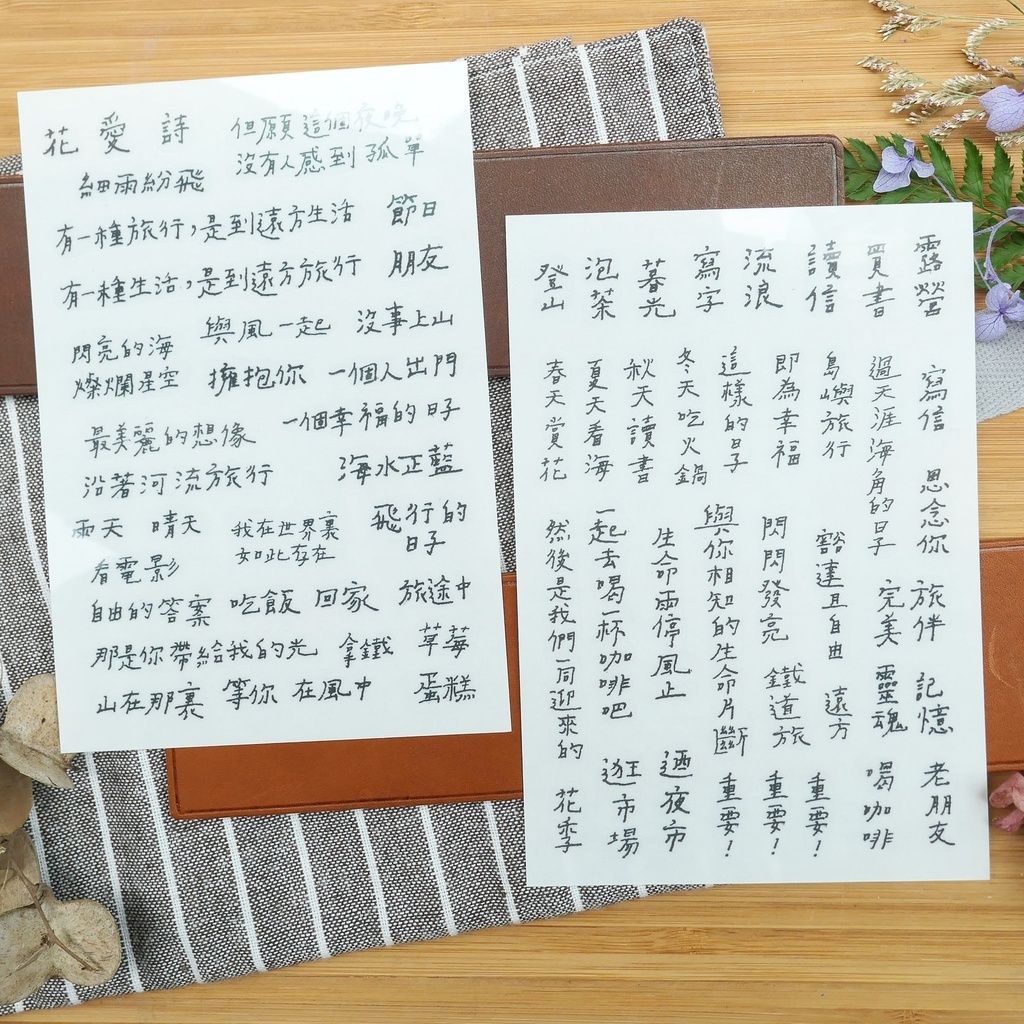 花 愛 詩
但願這個夜晚
沒有人感到孤單
細雨紛飛
有一種旅行，是到遠方生活
節日
有一種生活，是到遠方旅行
朋友
閃亮的海
燦爛星空
與風一起
沒事上山
擁抱你
一個人出門
最美麗的想像
一個幸福的日子
沿著河流旅行
海水正藍
雨天
晴天
我在世界裏
如此存在
飛行的
日子
看電影
自由的答案
吃飯
回家
旅途中
那是你帶給我的光
拿鐵
草莓
蛋糕
山在那裏
等你
在風中
露營
寫信
思念你
旅伴
記憶
老朋友
買書
過天涯海角的日子
完美靈魂
喝咖啡
讀信
島嶼旅行
豁達且自由
遠方
重要！
流浪
即為幸福
閃閃發亮
鐵道旅
重要！
寫字
這樣的日子
與你相知的生命片斷
重要！
暮光
冬天吃火鍋
生命雨停風止
迺夜市
泡茶
秋天讀書
一起去喝一杯咖啡吧
逛市場
登山
夏天看海
春天賞花
然後是我們一同迎來的
花季